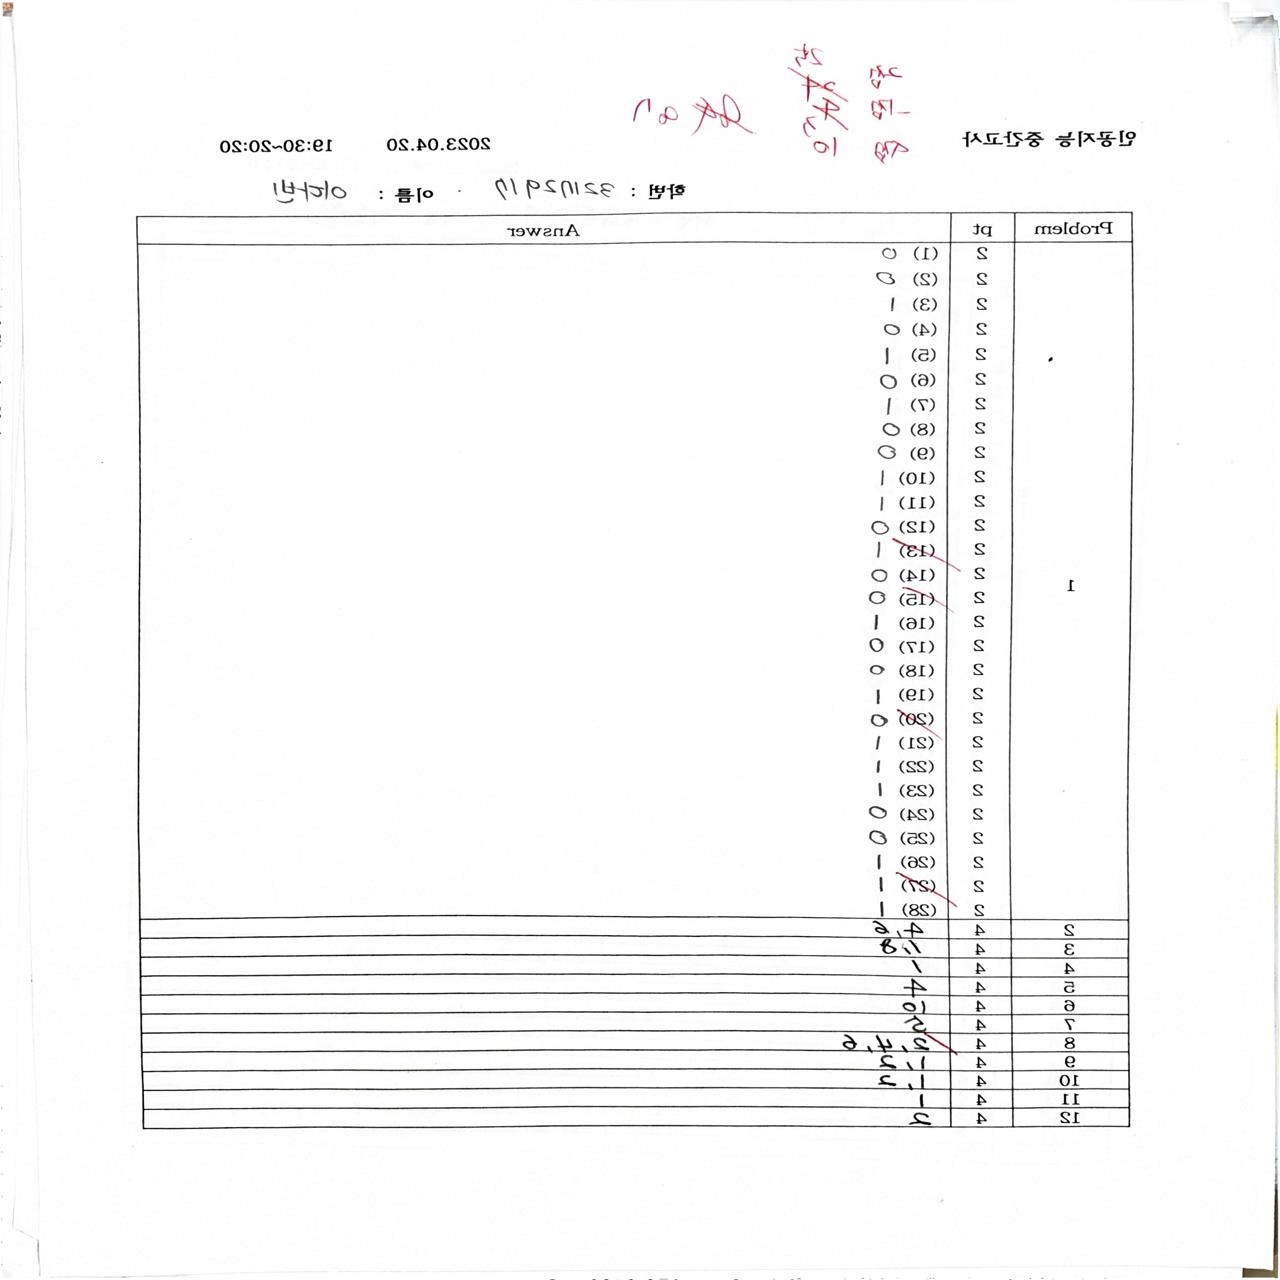 인공지능 중간고사 2023.04.20 19:30~20:20
학번 : 32172917 이름 : 이다빈
Problem pt Answer
1
2 (1) 0
2 (2) 0
2 (3) 1
2 (4) 0
2 (5) 1
2 (6) 0
2 (7) 1
2 (8) 0
2 (9) 0
2 (10) 1
2 (11) 1
2 (12) 0
2 (13) 1
2 (14) 0
2 (15) 0
2 (16) 1
2 (17) 0
2 (18) 0
2 (19) 1
2 (20) 0
2 (21) 1
2 (22) 1
2 (23) 1
2 (24) 0
2 (25) 0
2 (26) 1
2 (27) 1
2 (28) 1
2 4 4, 6
3 4 1, 8
4 4 1
5 4 4
6 4
7 4
8 4
9 4 1, 2
10 4 1, 2
11 4 1
12 4 2